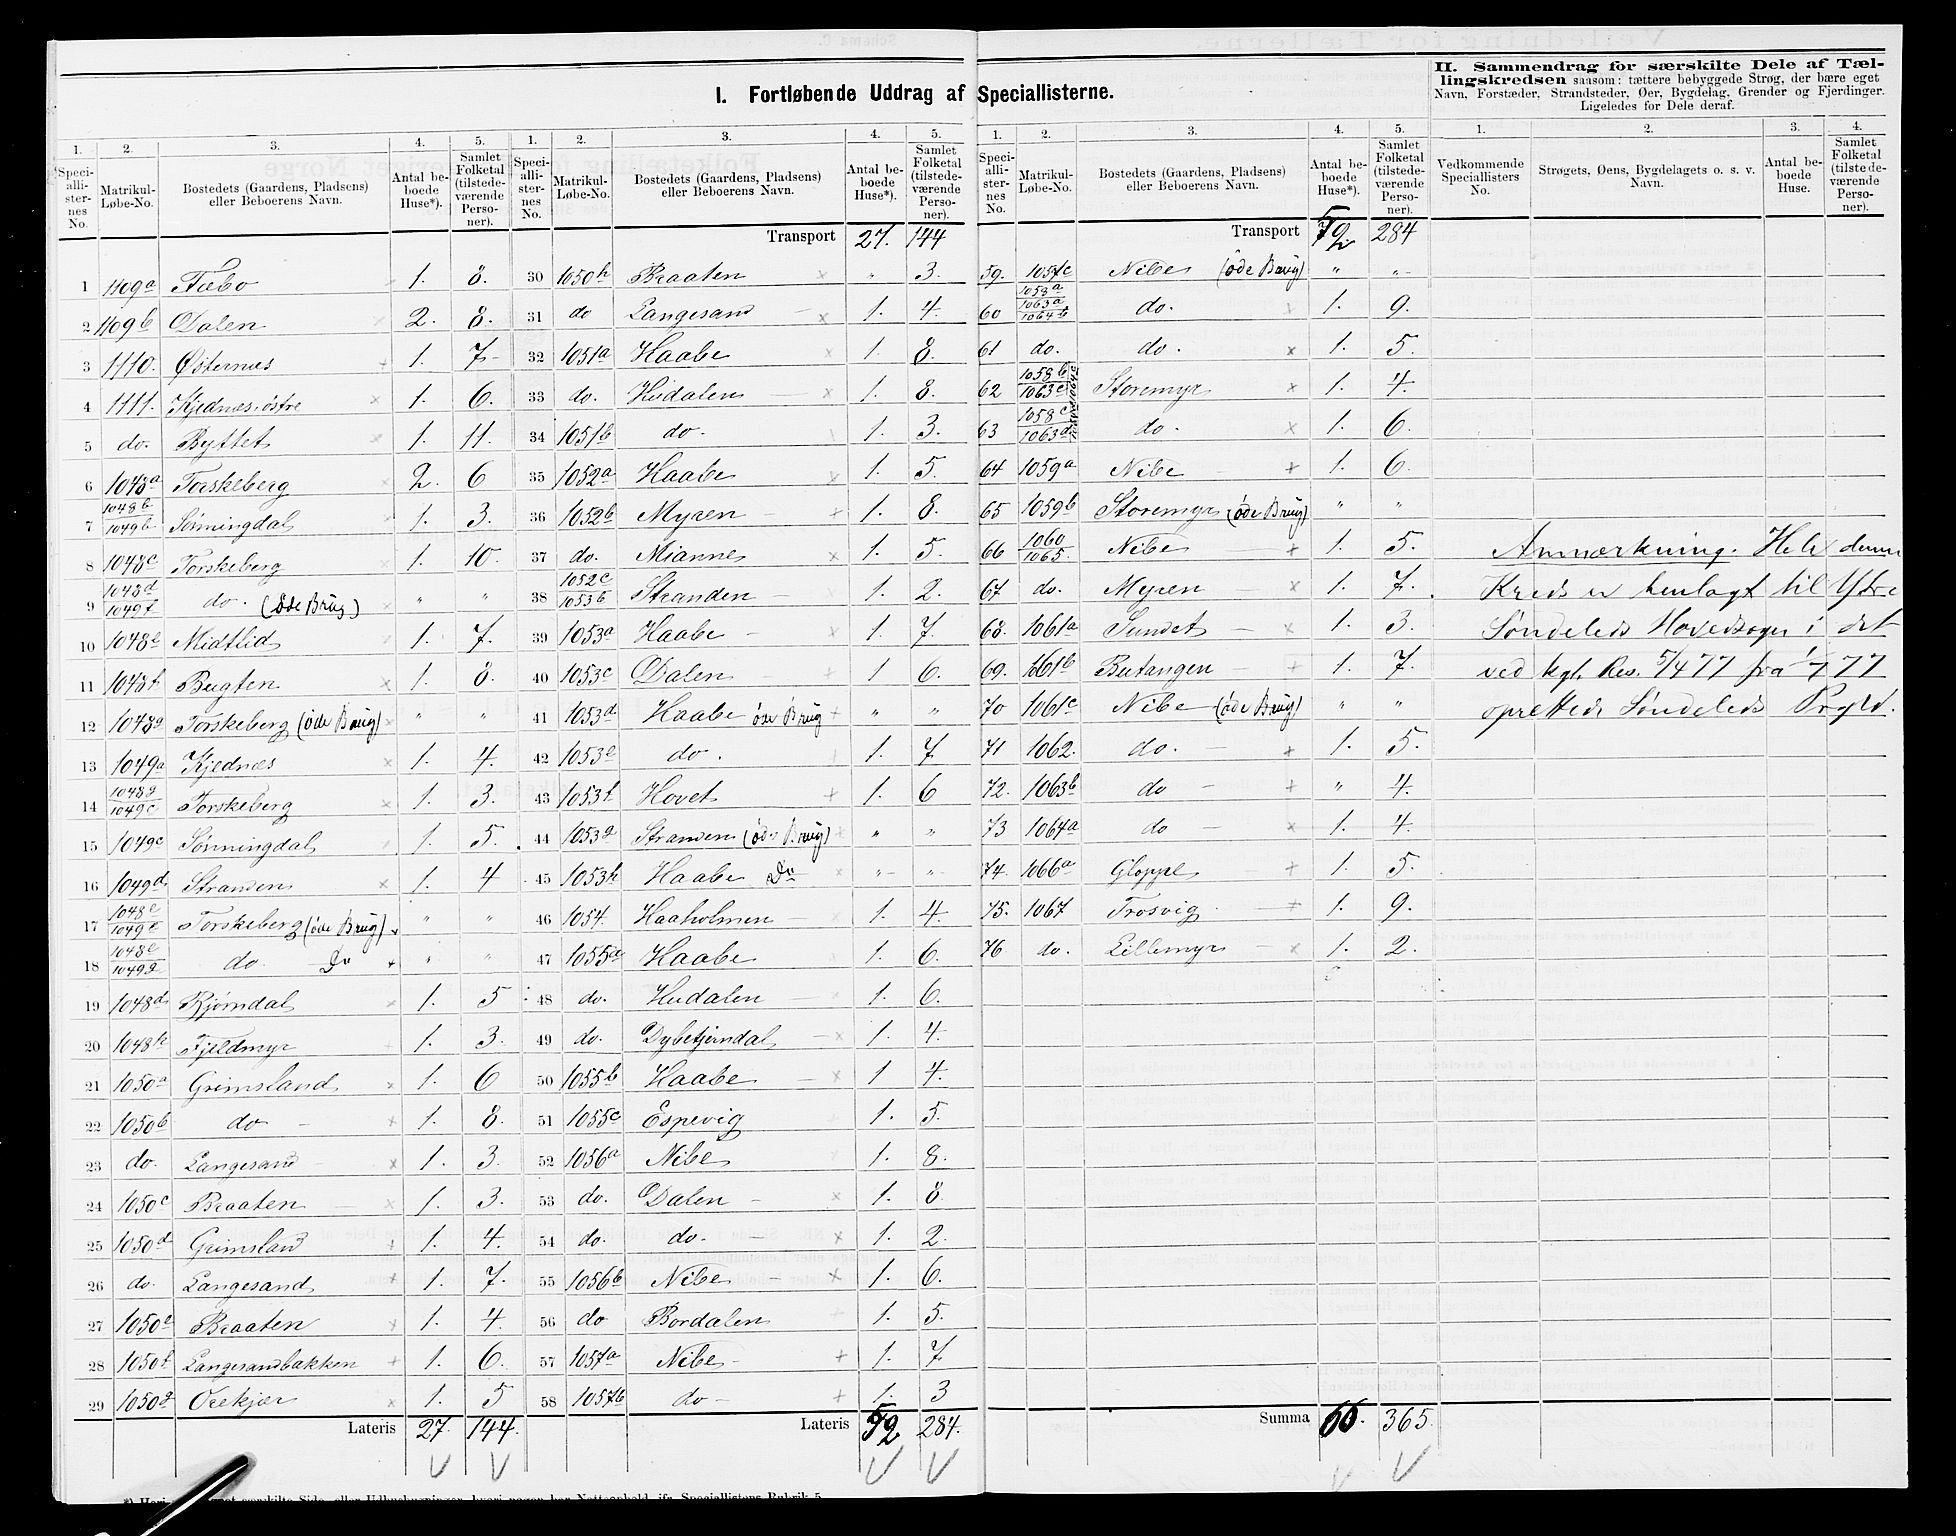 I. Fortløbende Uddrag af Speciallisterne.
II. Sammendrag for særskilte Dele af Tæl-
lingskredsen saasom: tættere bebyggede Strøg, der bære eget
Navn, Forstæder, Strandsteder, Øer, Bygdelag, Grender og Fjerdinger.
Ligeledes for Dele deraf.
1. 2. 3. 4. 5.
Speciallisternes No. Matrikul-Løbe-No. Bostedets (Gaardens, Pladsens) eller Beboerens Navn. Antal beboede Huse*). Samlet Folketal (tilstedeværende Personer).
1 1109a Fiebo 1. 8.
2 1109b Dalen 2. 8.
3 1110. Østernes 1. 7.
4 1111. Kjednæs østre 1. 6.
5 do. Byttet 1. 11.
6 1048a Torskeberg 2. 6
7 1048b/1049b Sønningdal 1. 3.
8 1048c Torskeberg 1. 10.
9 1048d/1049f do. (øde Brug) " "
10 1048e Midtlid 1. 7.
11 1048f Bugten 1. 8.
12 1048g Torskeberg (øde Brug) " "
13 1049a Kjednæs 1. 4.
14 1048g/1049c Torskeberg 1. 3.
15 1049c Sønningdal 1. 5.
16 1049d Stranden 1. 4
17 1048e/1049e Torskeberg (øde Brug) " "
18 1048e/1049g do. Do " "
19 1048d Bjørndal 1. 5
20 1048h Fjeldmyr 1. 3.
21 1050a Grimsland 1. 6
22 1050b do 1. 8.
23 do. Langesand 1. 3.
24 1050c Braaten 1. 3.
25 1050d Grimsland 1. 4.
26 do. Langesand 1. 7.
27 1050e Braaten 1. 4.
28 1050f Langesandbakken 1. 6.
29 1050g Orekjær 1. 5
Lateris 27. 144.
1. 2. 3. 4. 5.
Speciallisternes No. Matrikul-Løbe-No. Bostedets (Gaardens, Pladsens) eller Beboerens Navn. Antal beboede Huse*). Samlet Folketal (tilstedeværende Personer).
Transport 27. 144
30 1050h Braaten " 3.
31 do Langesand 1. 4.
32 1051a Haabe 1. 8.
33 do. Hudalen 1. 8.
34 1051b do. 1. 3.
35 1052a Haabe 1. 5.
36 1052b Myren 1. 8.
37 do. Mianne 1. 5.
38 1052c/1053b Stranden 1. 2.
39 1053a Haabe 1. 7.
40 1053c Dalen 1 6.
41 1053d Haabe øde Brug " "
42 1053e do. 1. 7
43 1053f Hovet 1. 6
44 1053g Stranden (øde Brug) " "
45 1053h Haabe Do " "
46 1054. Haaholmen 1. 4.
47 1055a Haabe 1. 6.
48 do. Hudalen 1. 6.
49 do. Dybetjerndal 1. 4.
50 1055b Haabe 1 4.
51 1055c Espevig 1. 5.
52 1056a Nibe 1. 8.
53 do. Dalen 1. 8
54 do. do. 1. 2.
55 1056b Nibe 1. 6.
56 do Bordalen 1. 5.
57 1057a Nibe 1. 7
58 1057b do 1. 3
Lateris 52 284.
1. 2. 3. 4. 5.
Speciallisternes No. Matrikul-Løbe-No. Bostedets (Gaardens, Pladsens) eller Beboerens Navn. Antal beboede Huse*). Samlet Folketal (tilstedeværende Personer).
Transport 52 284
59. 1057c Nibe (øde Brug) " "
60 1058a/1063a/1064b do. 1. 9.
61 do. do. 1. 5.
62 1058b/1063c Storemyr 1. 4.
63 1058c/1063d do. 1. 6.
64 1059a Nibe 1. 6.
65 1059b Storemyr (øde Brug) " "
66 1060/1065. Nibe 1. 5.
67 do. Myren 1. 7.
68. 1061a Sundet 1. 3.
69. 1061b Butangen 1. 7.
70 1061c Nibe (øde Brug) " "
71 1062. do. 1. 5.
72. 1063b do " 4.
73 1064a do 1. 4.
74. 1066a Gloppe 1. 5.
75. 1067 Trosvig 1. 9.
76 do. Lillemyr 1. 2.
Summa 66. 365.
1. 2. 3. 4.
Vedkommende Speciallisters No. Strøgets, Øens, Bygdelagets o. s. v. Navn. Antal beboede Huse. Samlet Folketal (tilstedeværende Personer).
Anmærkning. Hele denne
Kreds er henlagt til Ytre
Søndeleds Hovedsogn i det
ved kgl. Res. 5/4 77 fra 1/7 77
oprettede Søndeleds Prgld.